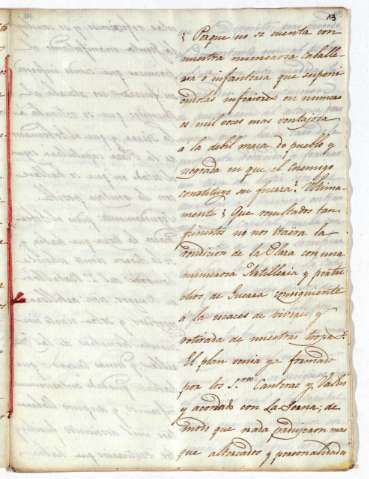 13
¿ Porque no se cuenta con
nuestra numerosa Caballe
ria o infanteria que suponi
endolas inferiores en numero
es mil veces mas ventajosa
a la debil masa de pueblo y
negrada en que el enemigo
constituye su fuerza? Ultima
mente ¿ Que resultados tan
funestos no nos traera la
rendicion de la Plaza con una
numerosa Artilleria y
de fuerza consiguiente
a la escases de viveres y
retirada de nuestras tropas?
El plan venia ya formado
por los S.res Canterac y Valdes
y acordado con la Serna; de
modos que nada produjeron mas
que altercados y personalidades